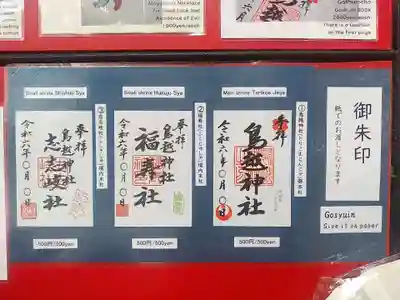 Avoidance of Evil
1000yen/each
Goshuincho
Goshuin Book
2000yen/each
There is a Goshuin
on the first page
Main shrine Torikoe Jinja
奉拝
鳥越神社
令和六年〇月〇日
500円/500yen
Small shrine Fukuju-Sya
奉拝
鳥越神社
福寿社
令和六年〇月〇日
500円/500yen
奉拝
鳥越神社
志志岐社
令和六年〇月〇日
500円/500yen
御朱印
紙でのお渡しとなります
Gosyuin
Give it on paper